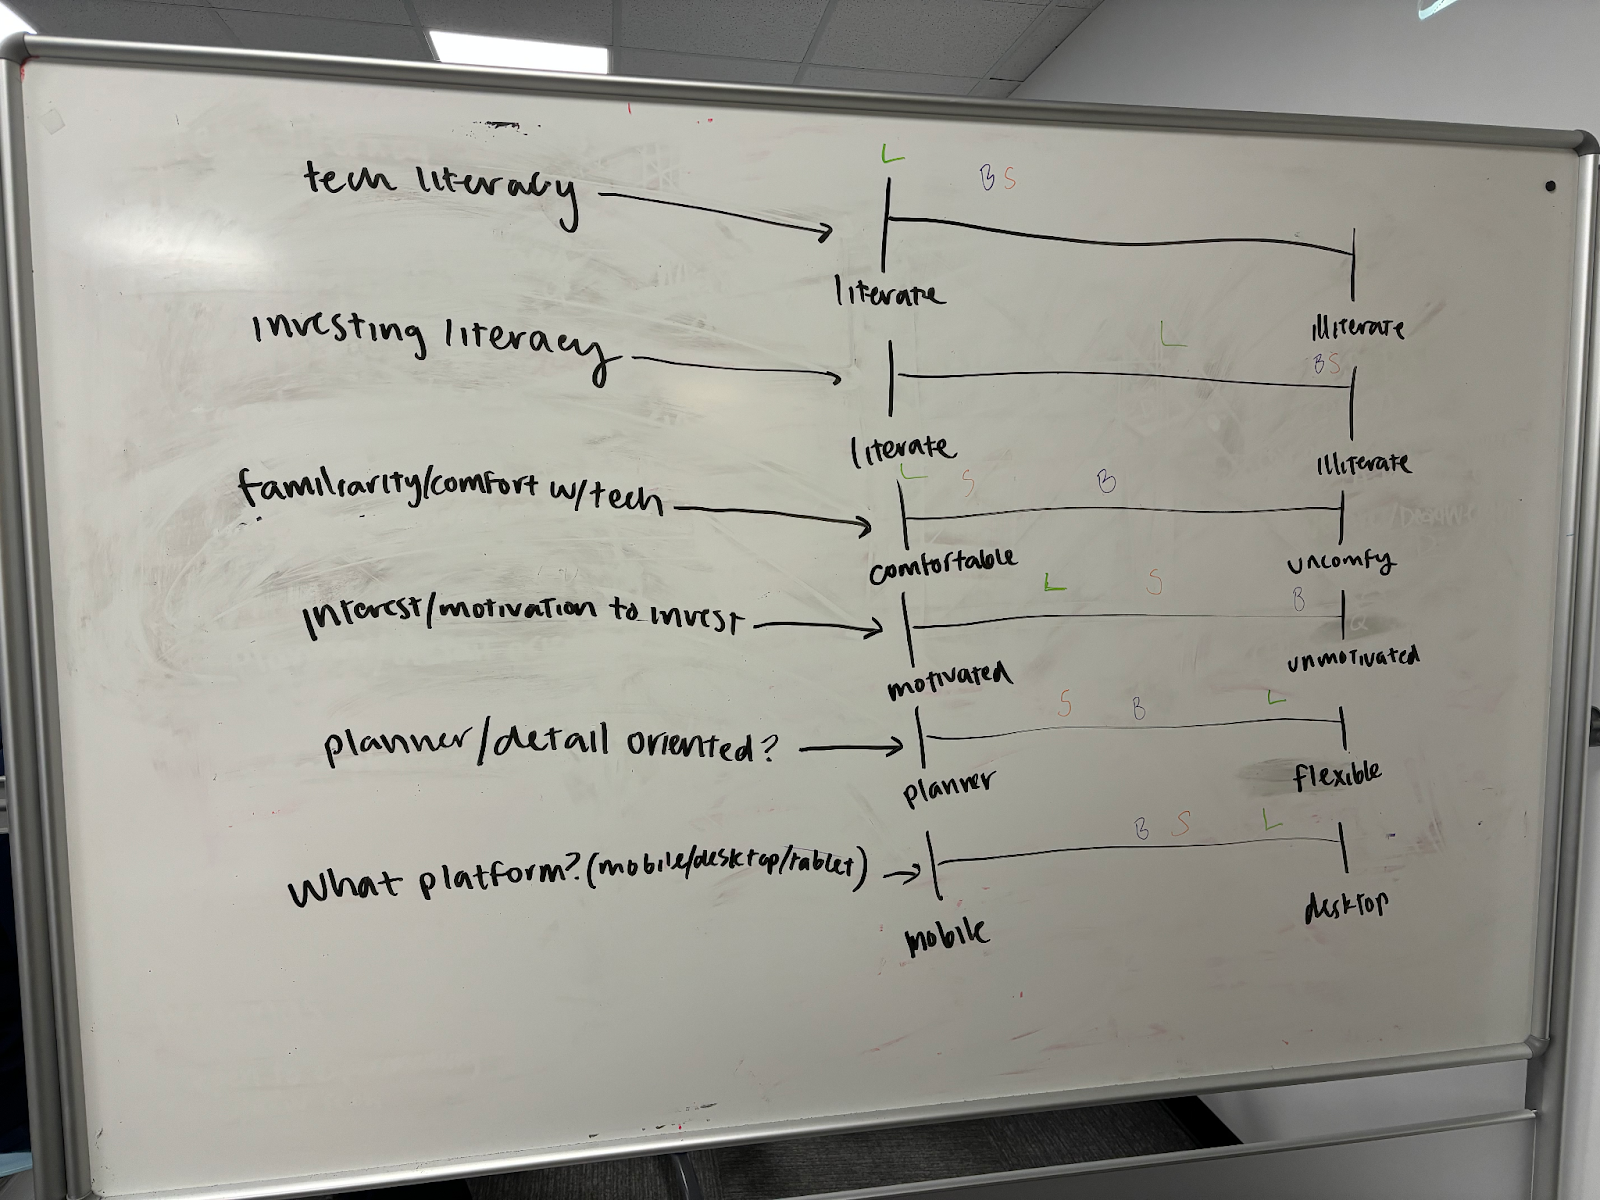 L
B S
tech literacy
literate
illiterate
L
investing literacy
B S
literate
illiterate
L S B
familiarity/comfort w/tech
comfortable
uncomfy
L S B
interest/motivation to invest
motivated
unmotivated
S B L
planner/detail oriented?
planner
flexible
B S L
What platform? (mobile/desktop/tablet)
mobile
desktop